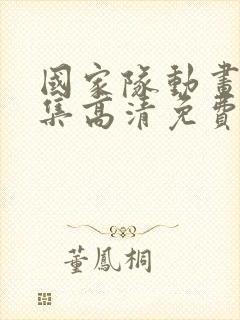 國家隊動畫
集高清免費
董鳳桐